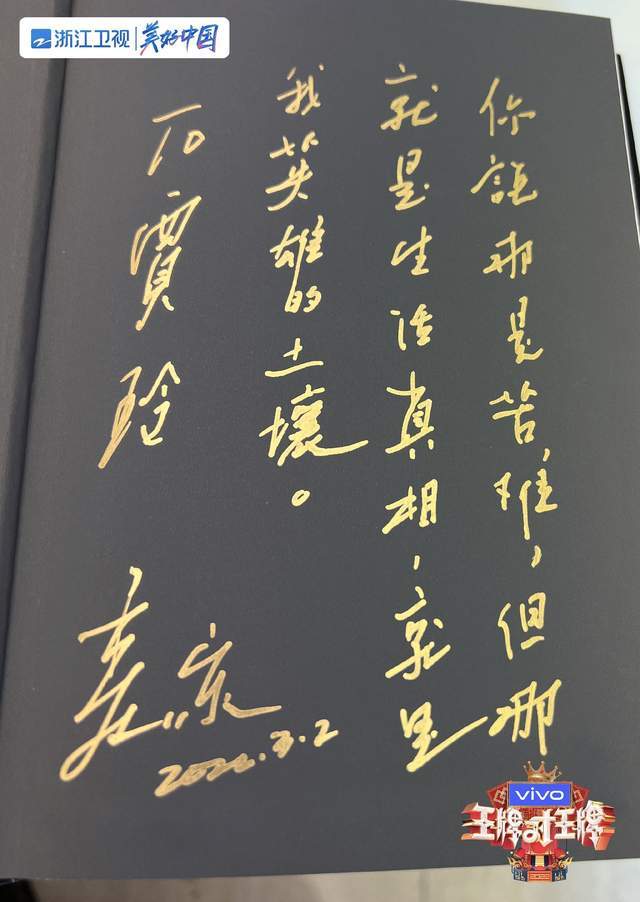 浙江卫视|美好中国
你說那是苦难，但那
就是生活真相，就是
我英雄的土壤。
賈玲
vivo
王牌对王牌